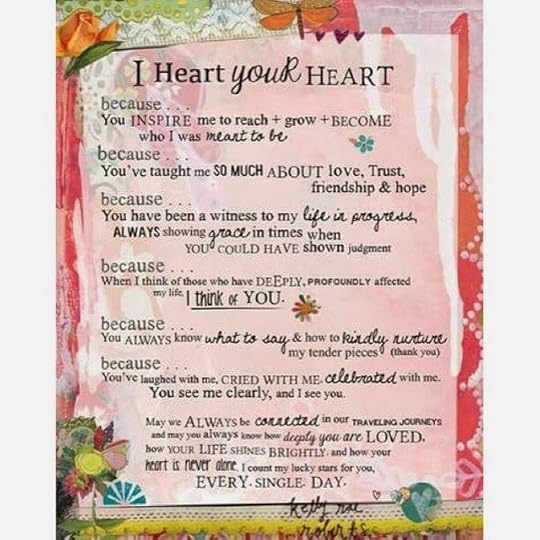 I Heart youR HEART
because . . .
You INSPIRE me to reach + grow + BECOME
who I was meant to be
because . . .
You've taught me SO MUCH ABOUT love, Trust,
friendship & hope
because . . .
You have been a witness to my life in progress,
ALWAYS showing grace in times when
YOU COULD HAVE shown judgment
because . . .
When I think of those who have DEEPLY, PROFOUNDLY affected
my life, I think OF YOU.
because . . .
You ALWAYS know what to say & how to kindly nurture
my tender pieces (thank you)
because . . .
You've laughed with me, CRIED WITH ME, celebrated with me.
You see me clearly, and I see you.
May we ALWAYS be connected in our TRAVELING JOURNEYS
and may you always know how deeply you are LOVED,
how YOUR LIFE SHINES BRIGHTLY, and how your
heart is never alone. I count my lucky stars for you,
EVERY. SINGLE. DAY.
kelly rae
roberts